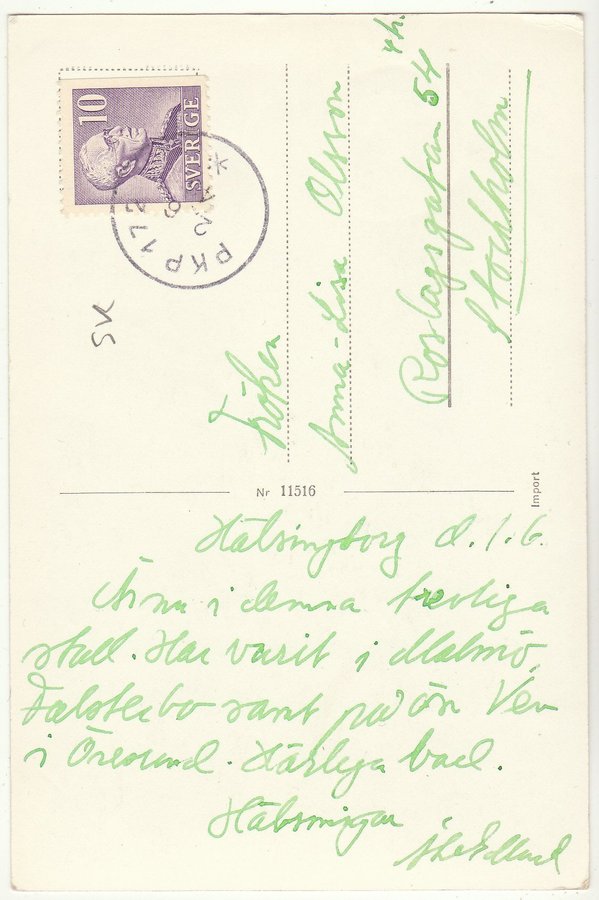 10
SVERIGE
PKP 172
SK
Fröken
Anna-Lisa Olsson
Roslagsgatan 54
4 h.
Stockholm
Nr 11516
Import
Hälsingborg d. 1.6.
Är nu i denna trevliga
stad. Har varit i Malmö,
Falsterbo samt på ön Ven
i Öresund. Härliga bad.
Hälsningar